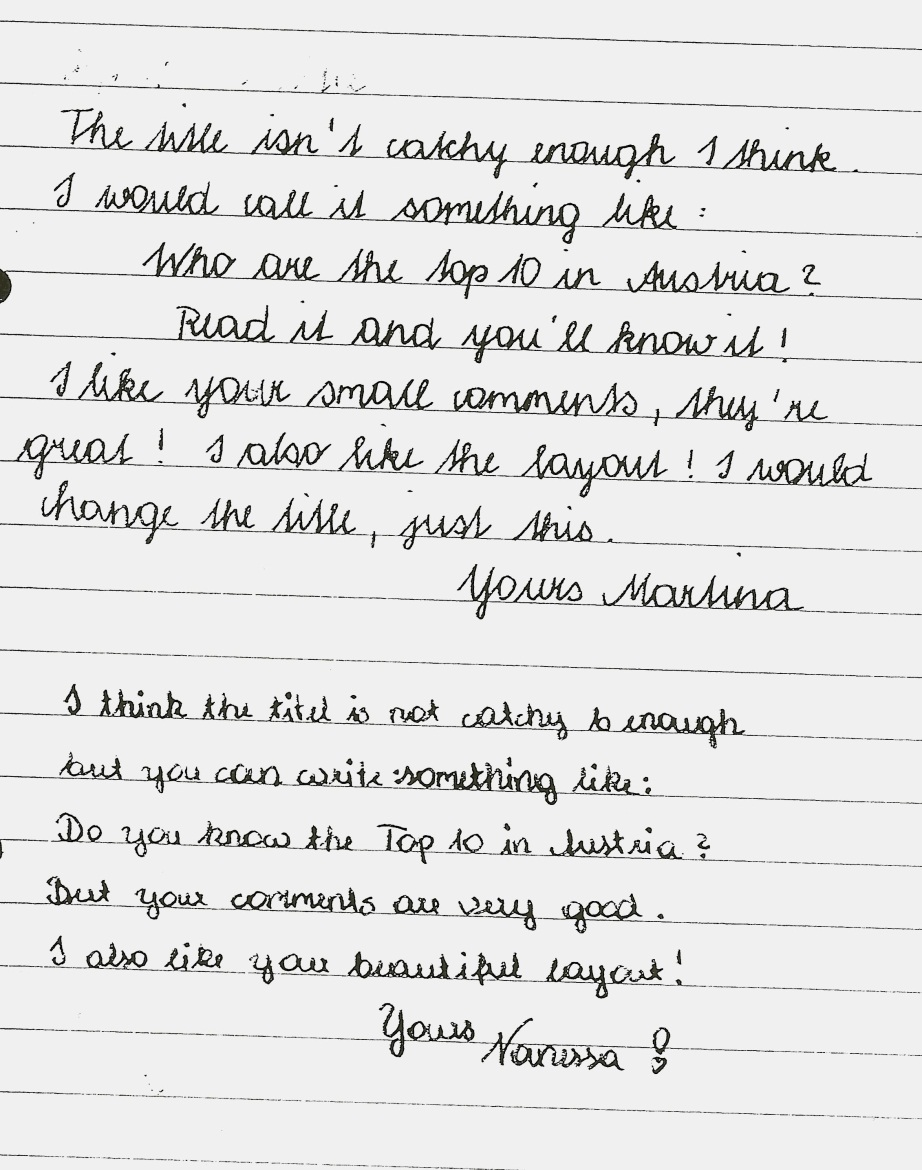 The title isn't catchy enough I think.
I would call it something like:
Who are the top 10 in Austria?
Read it and you'll know it!
I like your small comments, they're
great! I also like the layout! I would
change the title, just this.
Yours Martina
I think the titel is not catchy enough
but you can write something like:
Do you know the Top 10 in Austria?
But your comments are very good.
I also like your beautiful layout!
Yours